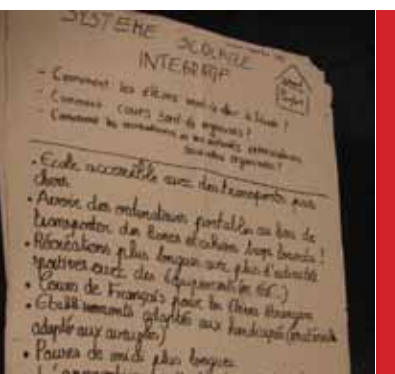 SYSTEME SCOLAIRE
INTERACTIF
- Comment les élèves vont-ils à l'école ?
- Comment cours sont-ils organisés ?
- Comment les et les activités extrascolaires
sont-elles organisées ?
• Ecole accessible avec des transports pas
chers
• Avoir des ordinateurs portables au lieu de
transporter des livres et cahiers trop lourds !
• Récréations plus longues avec plus d'activités
sportives avec des équipements (
• Cours de Français pour les élèves étrangers
• Etablissements adaptés aux handicapés (matériels
adapté aux aveugles)
• Pauses de midi plus longues